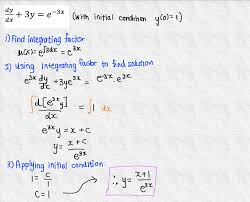 dy/dx + 3y = e^{-3x} (with initial condition y(0)=1)
1) Find integrating factor
u(x) = e^{∫3dx} = e^{3x}
2) Using integrating factor to find solution
e^{3x} dy/dx + 3ye^{3x} = e^{-3x}·e^{3x}
∫ d[e^{3x}y]/dx = ∫1 dx
e^{3x}y = x + c
y = x + c / e^{3x}
3) Applying initial condition
1 = c/1
c = 1
∴ y = x+1 / e^{3x}